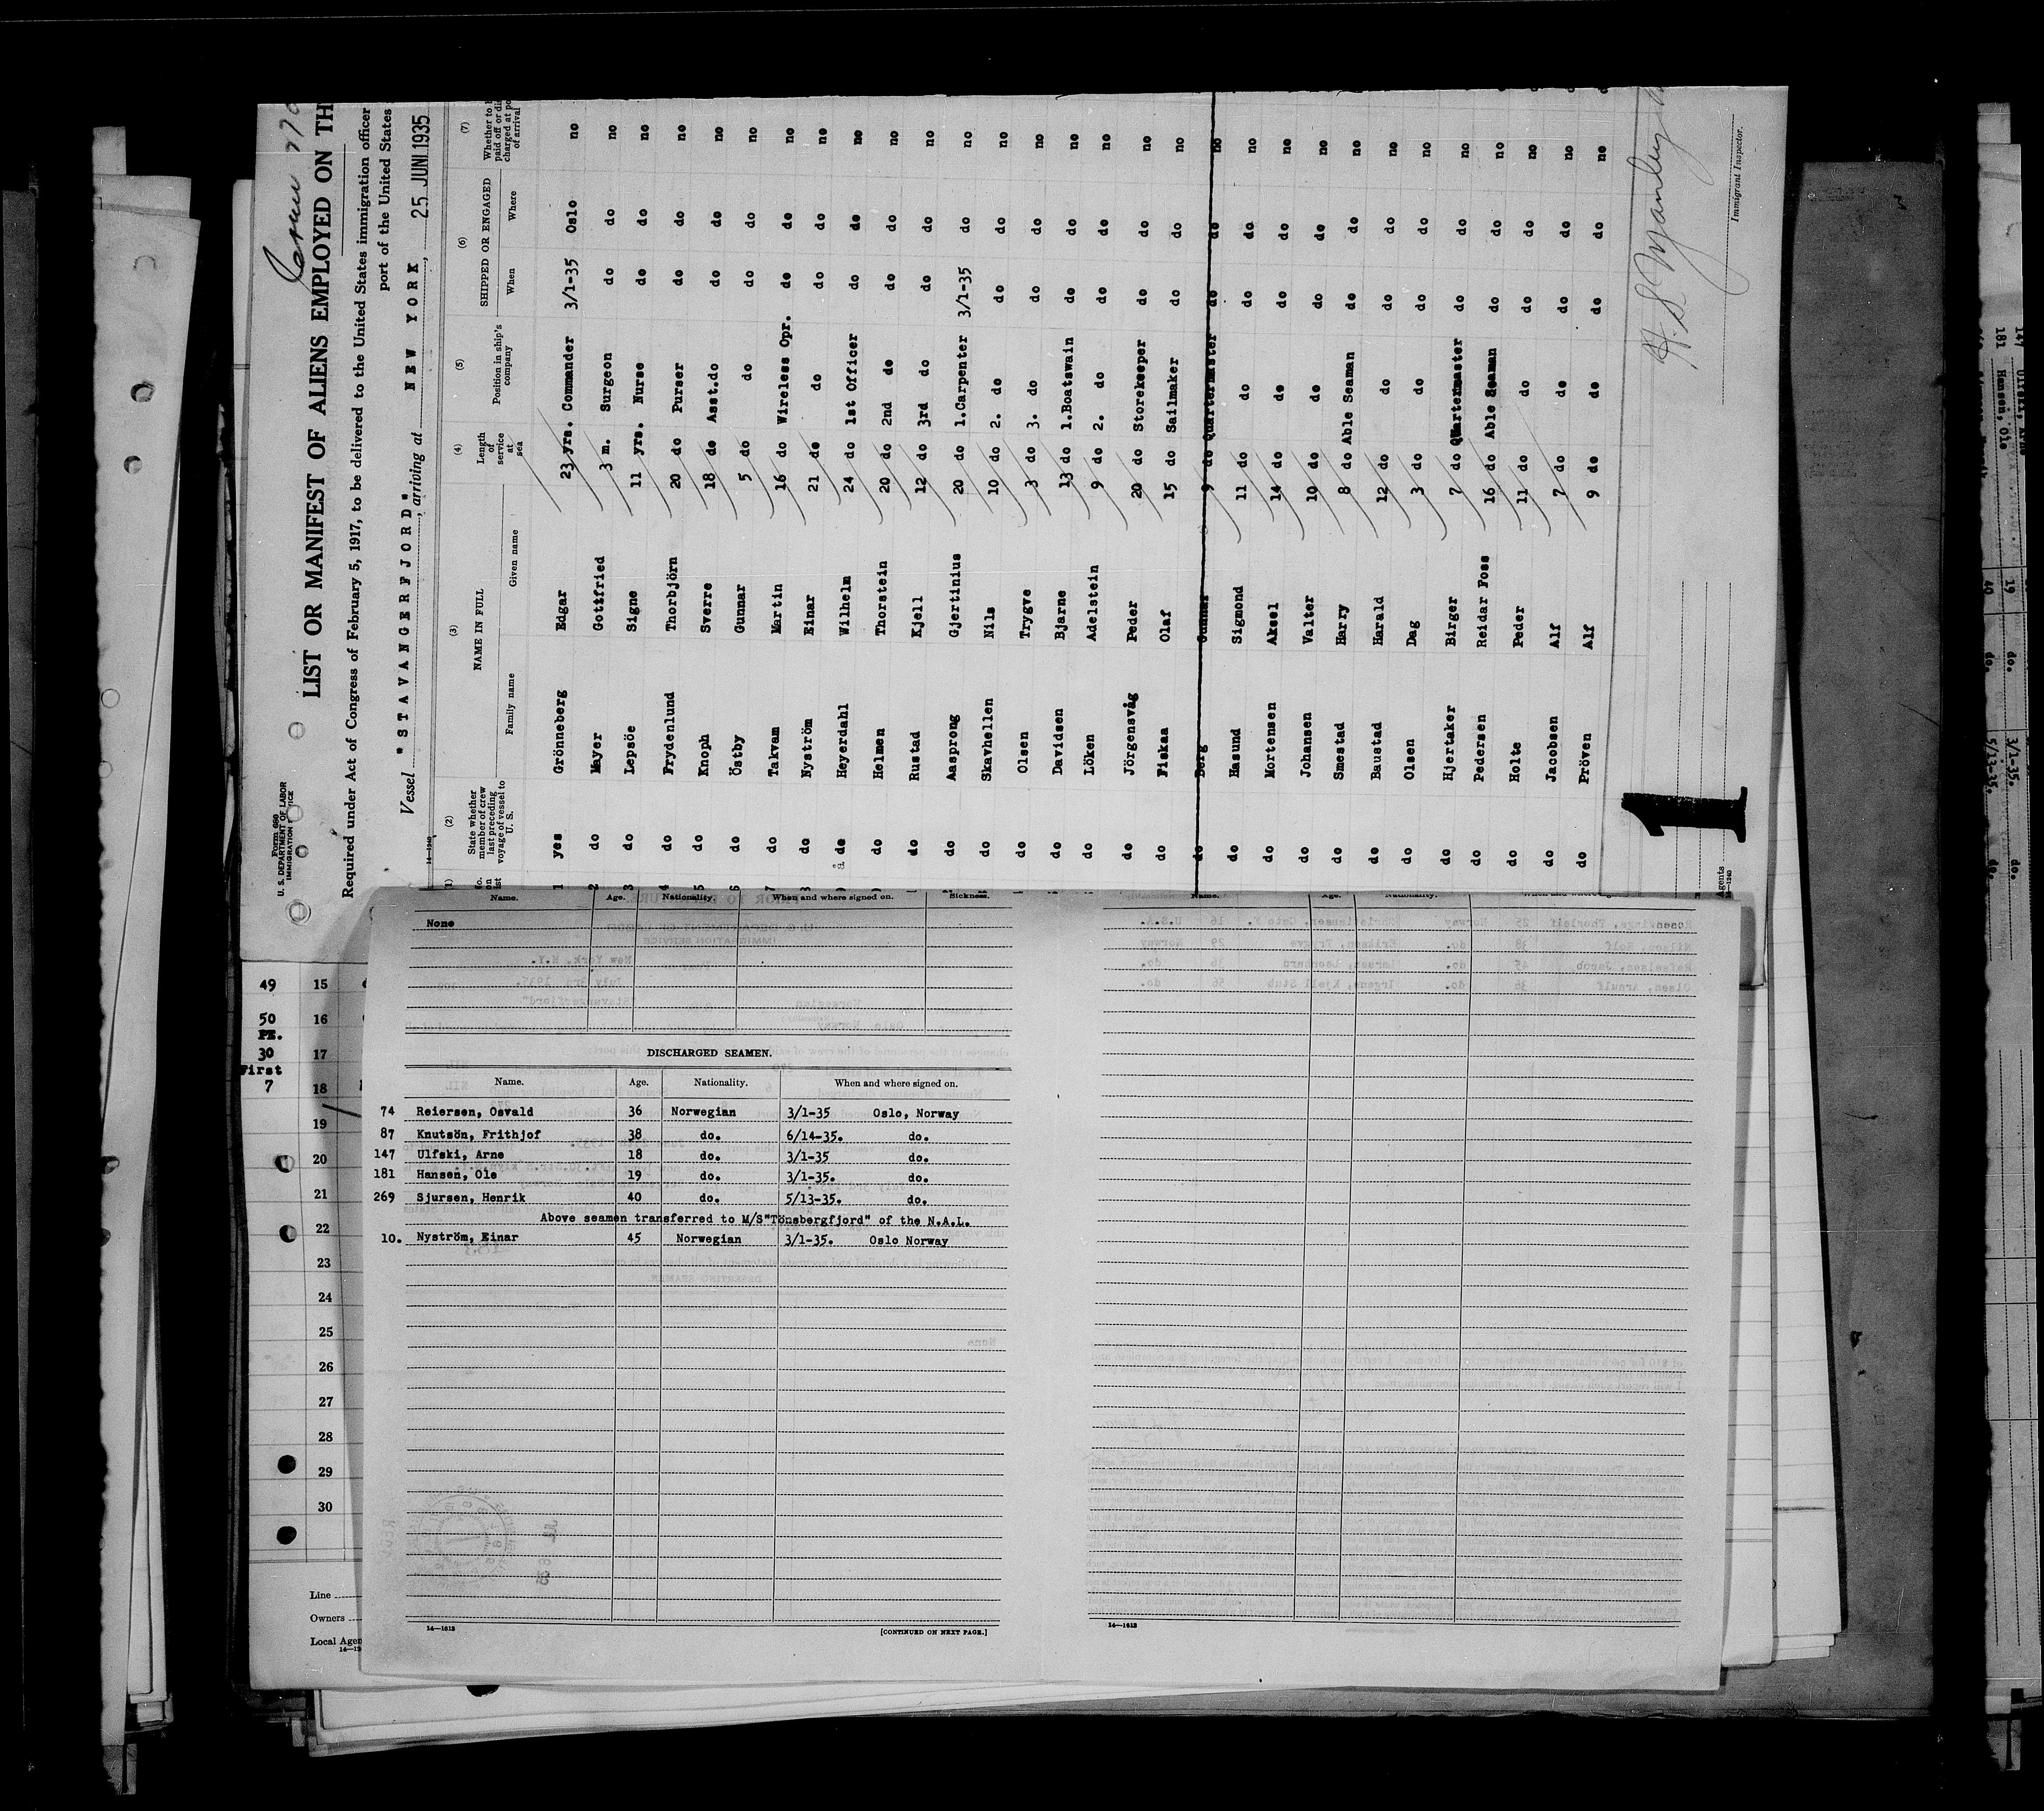 Form 680
U. S. DEPARTMENT OF LABOR
LIST OR MANIFEST OF ALIENS EMPLOYED ON TH
Required under Act of Congress of February 5, 1917, to be delivered to the United States immigration officer
port of the United States
Vessel "STAVANGERFJORD", arriving at NEW YORK, 25. JUNI 1935
(2) (3) (4) (5) (6) (7)
State whether member of crew last preceding voyage of vessel to U. S. NAME IN FULL Family name Given name Length of service at sea Position in ship's company SHIPPED OR ENGAGED When Where
1 yes Grönneberg Edgar 23 yrs. Commander 3/1-35 Oslo no
2 do Mayer Gottfried 3 m. Surgeon do do no
3 do Lepsöe Signe 11 yrs. Nurse do do no
4 do Frydenlund Thorbjörn 20 do Purser do do no
5 do Knoph Sverre 18 do Asst.do do do no
6 do Östby Gunnar 5 do do do do no
7 do Takvam Martin 16 do Wireless Opr. do do no
do Nyström Einar 21 do do do do no
do Heyerdahl Wilhelm 24 do 1st Officer do do no
do Helmen Thorstein 20 do 2nd do do do no
do Rustad Kjell 12 do 3rd do do do no
do Aasprong Gjertinius 20 do 1.Carpenter 3/1-35 do no
do Skavhellen Nils 10 do 2. do do do no
do Olsen Trygve 3 do 3. do do do no
do Davidsen Bjarne 13 do 1.Boatswain do do no
do Löken Adelstein 9 do 2. do do do no
do Jörgensvåg Peder 20 do Storekeeper do do no
do Fiskaa Olaf 15 do Sailmaker do do no
do Berg Gunnar 9 do Quartermaster do do no
do Hasund Sigmond 11 do do do do no
do Mortensen Aksel 14 do do do do no
do Johansen Valter 10 do do do do no
do Smestad Harry 8 do Able Seaman do do no
do Baustad Harald 12 do do do do no
do Olsen Dag 3 do do do do no
do Hjertaker Birger 7 do Quartermaster do do no
do Pedersen Reidar Foss 16 do Able Seaman do do no
do Holte Peder 11 do do do do no
do Jacobsen Alf 7 do do do do no
do Pröven Alf 9 do do do do no
Immigrant Inspector.
1
Name. Age. Nationality. When and where signed on. Sickness.
None
DISCHARGED SEAMEN.
Name. Age. Nationality. When and where signed on.
74 Reiersen, Osvald 36 Norwegian 3/1-35 Oslo, Norway
87 Knutsön, Frithjof 38 do. 6/14-35. do.
147 Ulfski, Arne 18 do. 3/1-35 do.
181 Hansen, Ole 19 do. 3/1-35. do.
269 Sjursen, Henrik 40 do. 5/13-35. do.
Above seamen transferred to M/S"Tönsbergfjord" of the N.A.L.
10. Nyström, Einar 45 Norwegian 3/1-35. Oslo Norway
14—1613
[CONTINUED ON NEXT PAGE.]
14—1613
49 15
50 16
PE.
30 17
First
7 18
19
20
21
22
23
24
25
26
27
28
29
30
Line
Owners
Local Agen